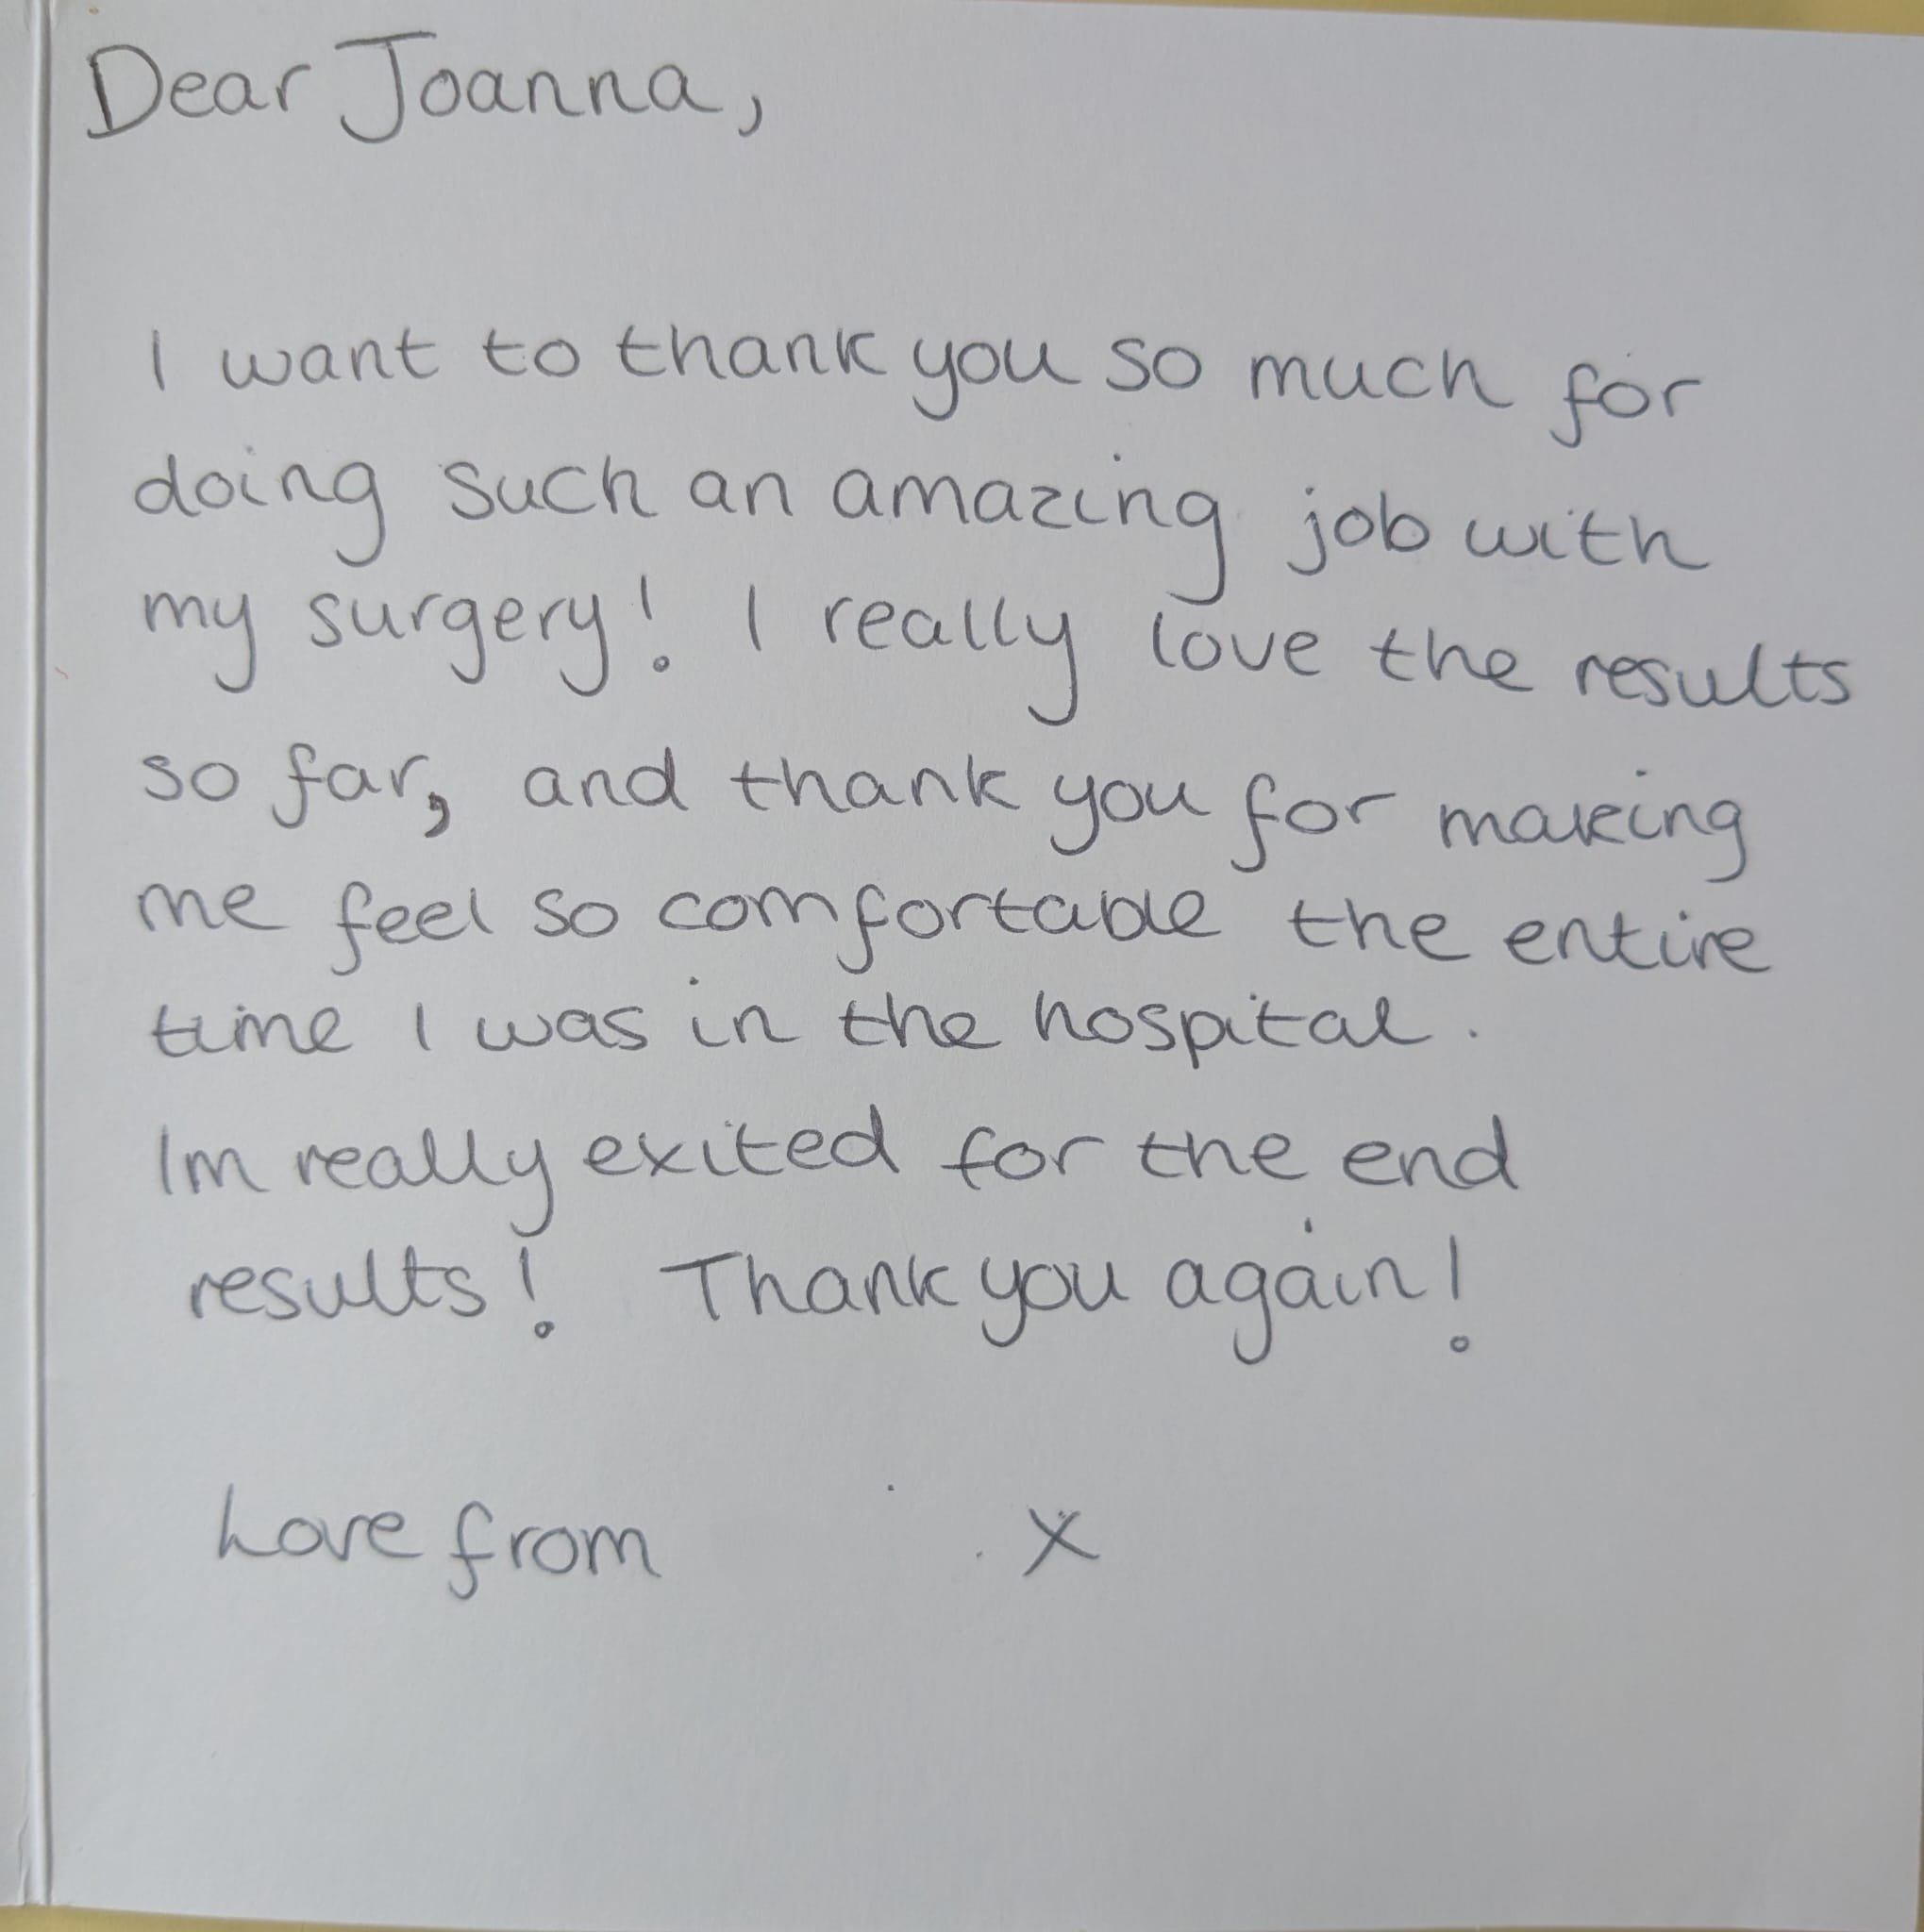 Dear Joanna,
I want to thank you so much for
doing such an amazing job with
my surgery! I really love the results
so far, and thank you for making
me feel so comfortable the entire
time I was in the hospital.
Im really exited for the end
results! Thank you again!
Love from x